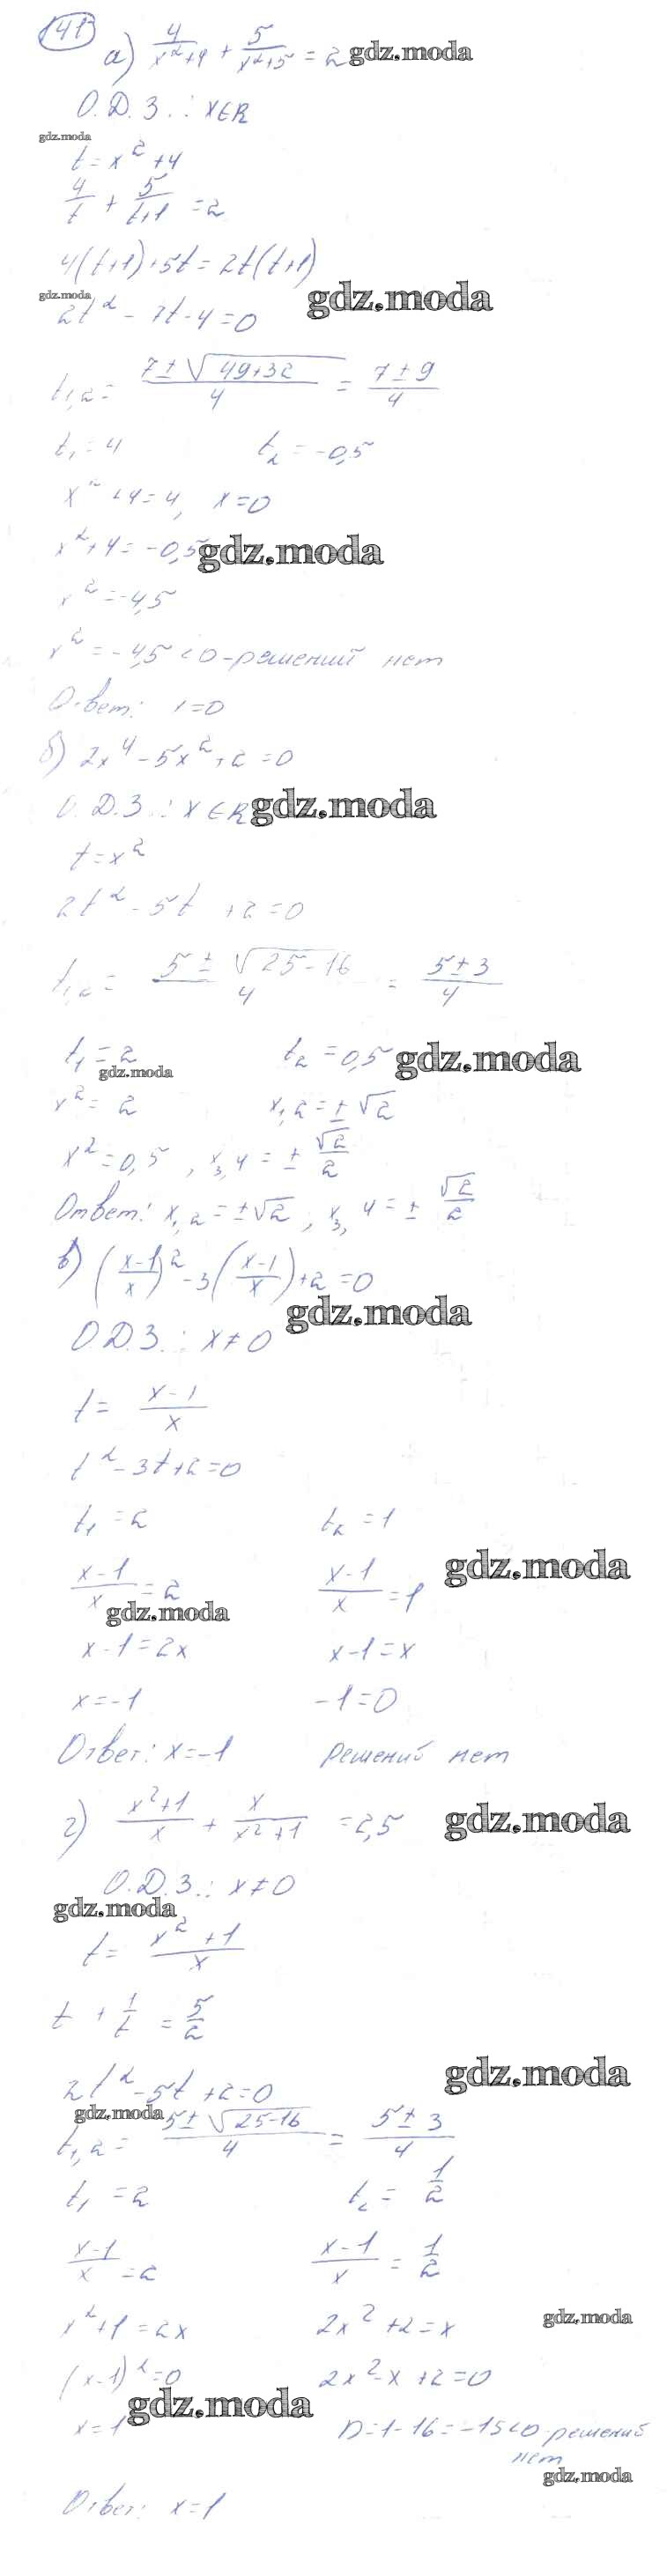 141
а) 4/(x²+4) + 5/(x²+5) = 2 gdz.moda
О.Д.З.: x∈R
gdz.moda
t = x² + 4
4/t + 5/(t+1) = 2
4(t+1)+5t = 2t(t+1)
gdz.moda
gdz.moda
2t² - 7t - 4 = 0
t₁,₂ = (7±√(49+32))/4 = (7±9)/4
t₁ = 4 t₂ = -0,5
x² + 4 = 4, x = 0
x² + 4 = -0,5 gdz.moda
x² = -4,5
x² = -4,5 < 0 - решений нет
Ответ: x=0
б) 2x⁴ - 5x² + 2 = 0
О.Д.З.: x∈R gdz.moda
t = x²
2t² - 5t + 2 = 0
t₁,₂ = (5±√(25-16))/4 = (5±3)/4
t₁ = 2 t₂ = 0,5 gdz.moda
gdz.moda
x² = 2 x₁,₂ = ±√2
x² = 0,5, x₃,₄ = ±√2/2
Ответ: x₁,₂ = ±√2, x₃,₄ = ±√2/2
в) ((x-1)/x)² - 3((x-1)/x) + 2 = 0
gdz.moda
О.Д.З.: x≠0
t = (x-1)/x
t² - 3t + 2 = 0
t₁ = 2 t₂ = 1
(x-1)/x = 2 (x-1)/x = 1 gdz.moda
gdz.moda
x-1 = 2x x-1 = x
x = -1 -1 = 0
Ответ: x=-1 решений нет
г) (x²+1)/x + x/(x²+1) = 2,5 gdz.moda
О.Д.З.: x≠0
gdz.moda
t = (x²+1)/x
t + 1/t = 5/2
gdz.moda
2t² - 5t + 2 = 0
gdz.moda
t₁,₂ = (5±√(25-16))/4 = (5±3)/4
t₁ = 2 t₂ = 1/2
(x-1)/x = 2 (x-1)/x = 1/2
x² + 1 = 2x 2x² + 2 = x gdz.moda
(x-1)² = 0 2x² - x + 2 = 0
gdz.moda
x = 1 D = 1-16 = -15<0 - решений
нет
gdz.moda
Ответ: x=1